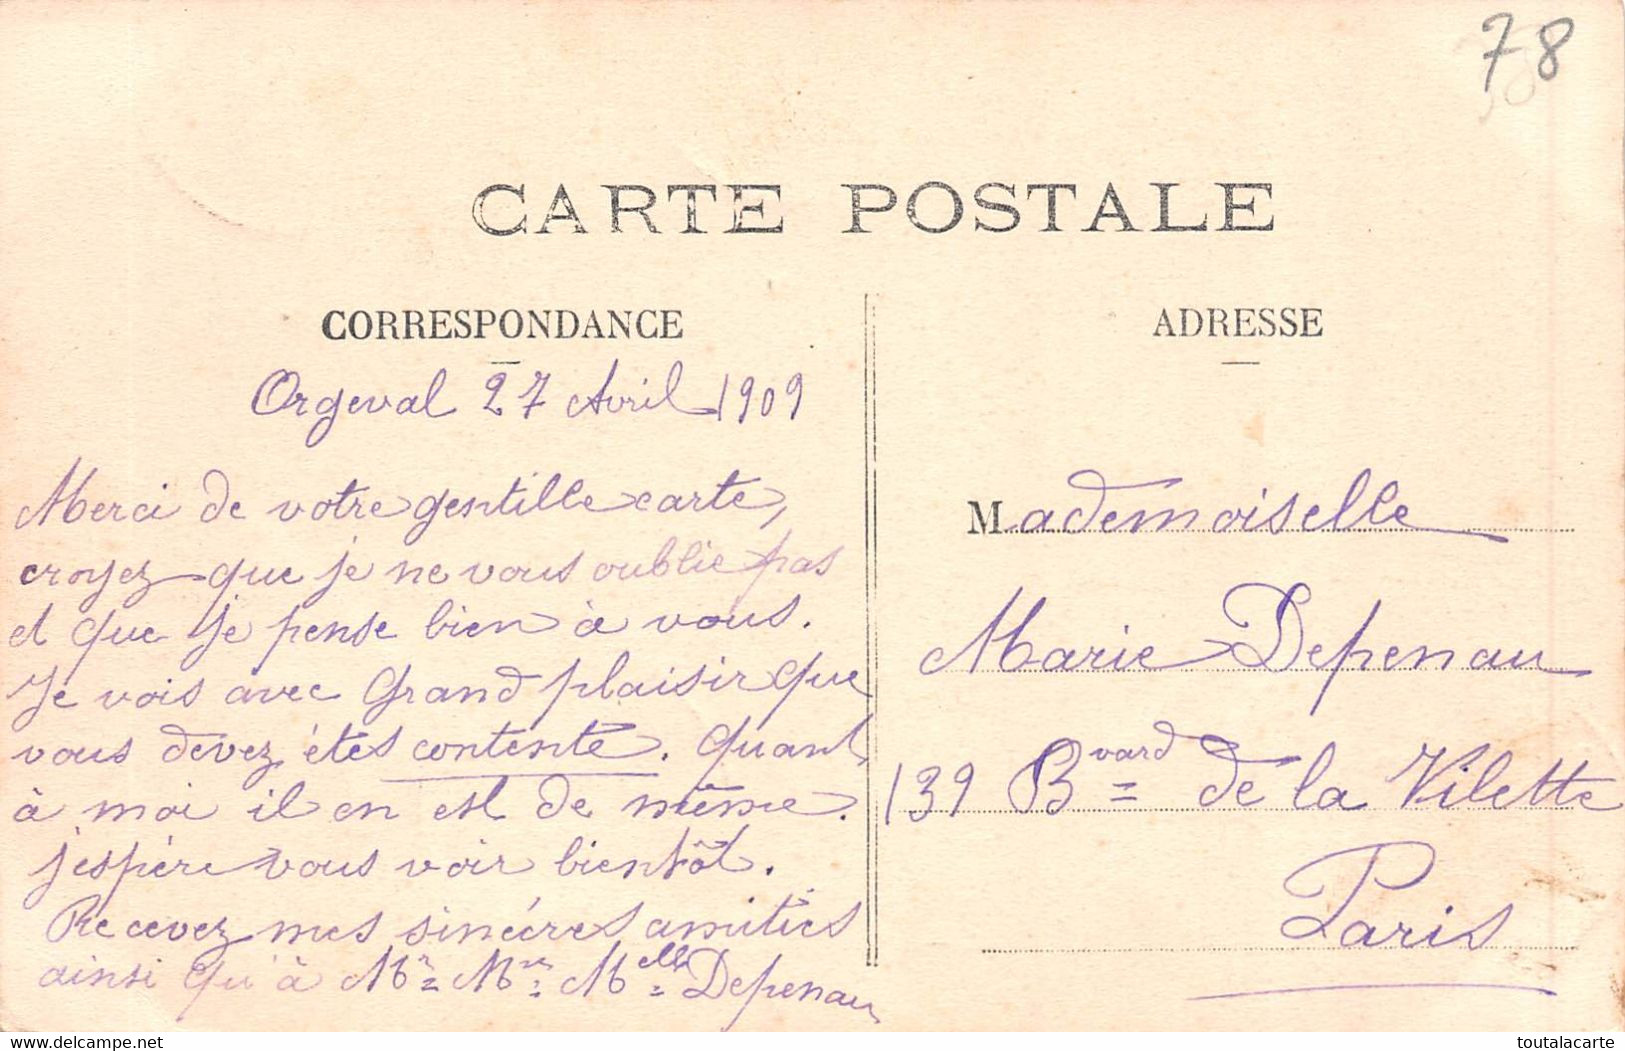 78
CARTE POSTALE
CORRESPONDANCE
Orgeval 27 Avril 1909
Merci de votre gentille carte,
croyez que je ne vous oublie pas
et que je pense bien à vous.
Je vois avec Grand plaisir que
vous devez êtes contente. Quant
à moi il en est de même.
j'espère vous voir bientôt.
Recevez mes sincères amitiés
ainsi qu'à Mr Mme Melle Depenau
ADRESSE
Mademoiselle
Marie Depenau
139 Bvard de la Vilette
Paris
www.delcampe.net
toutalacarte